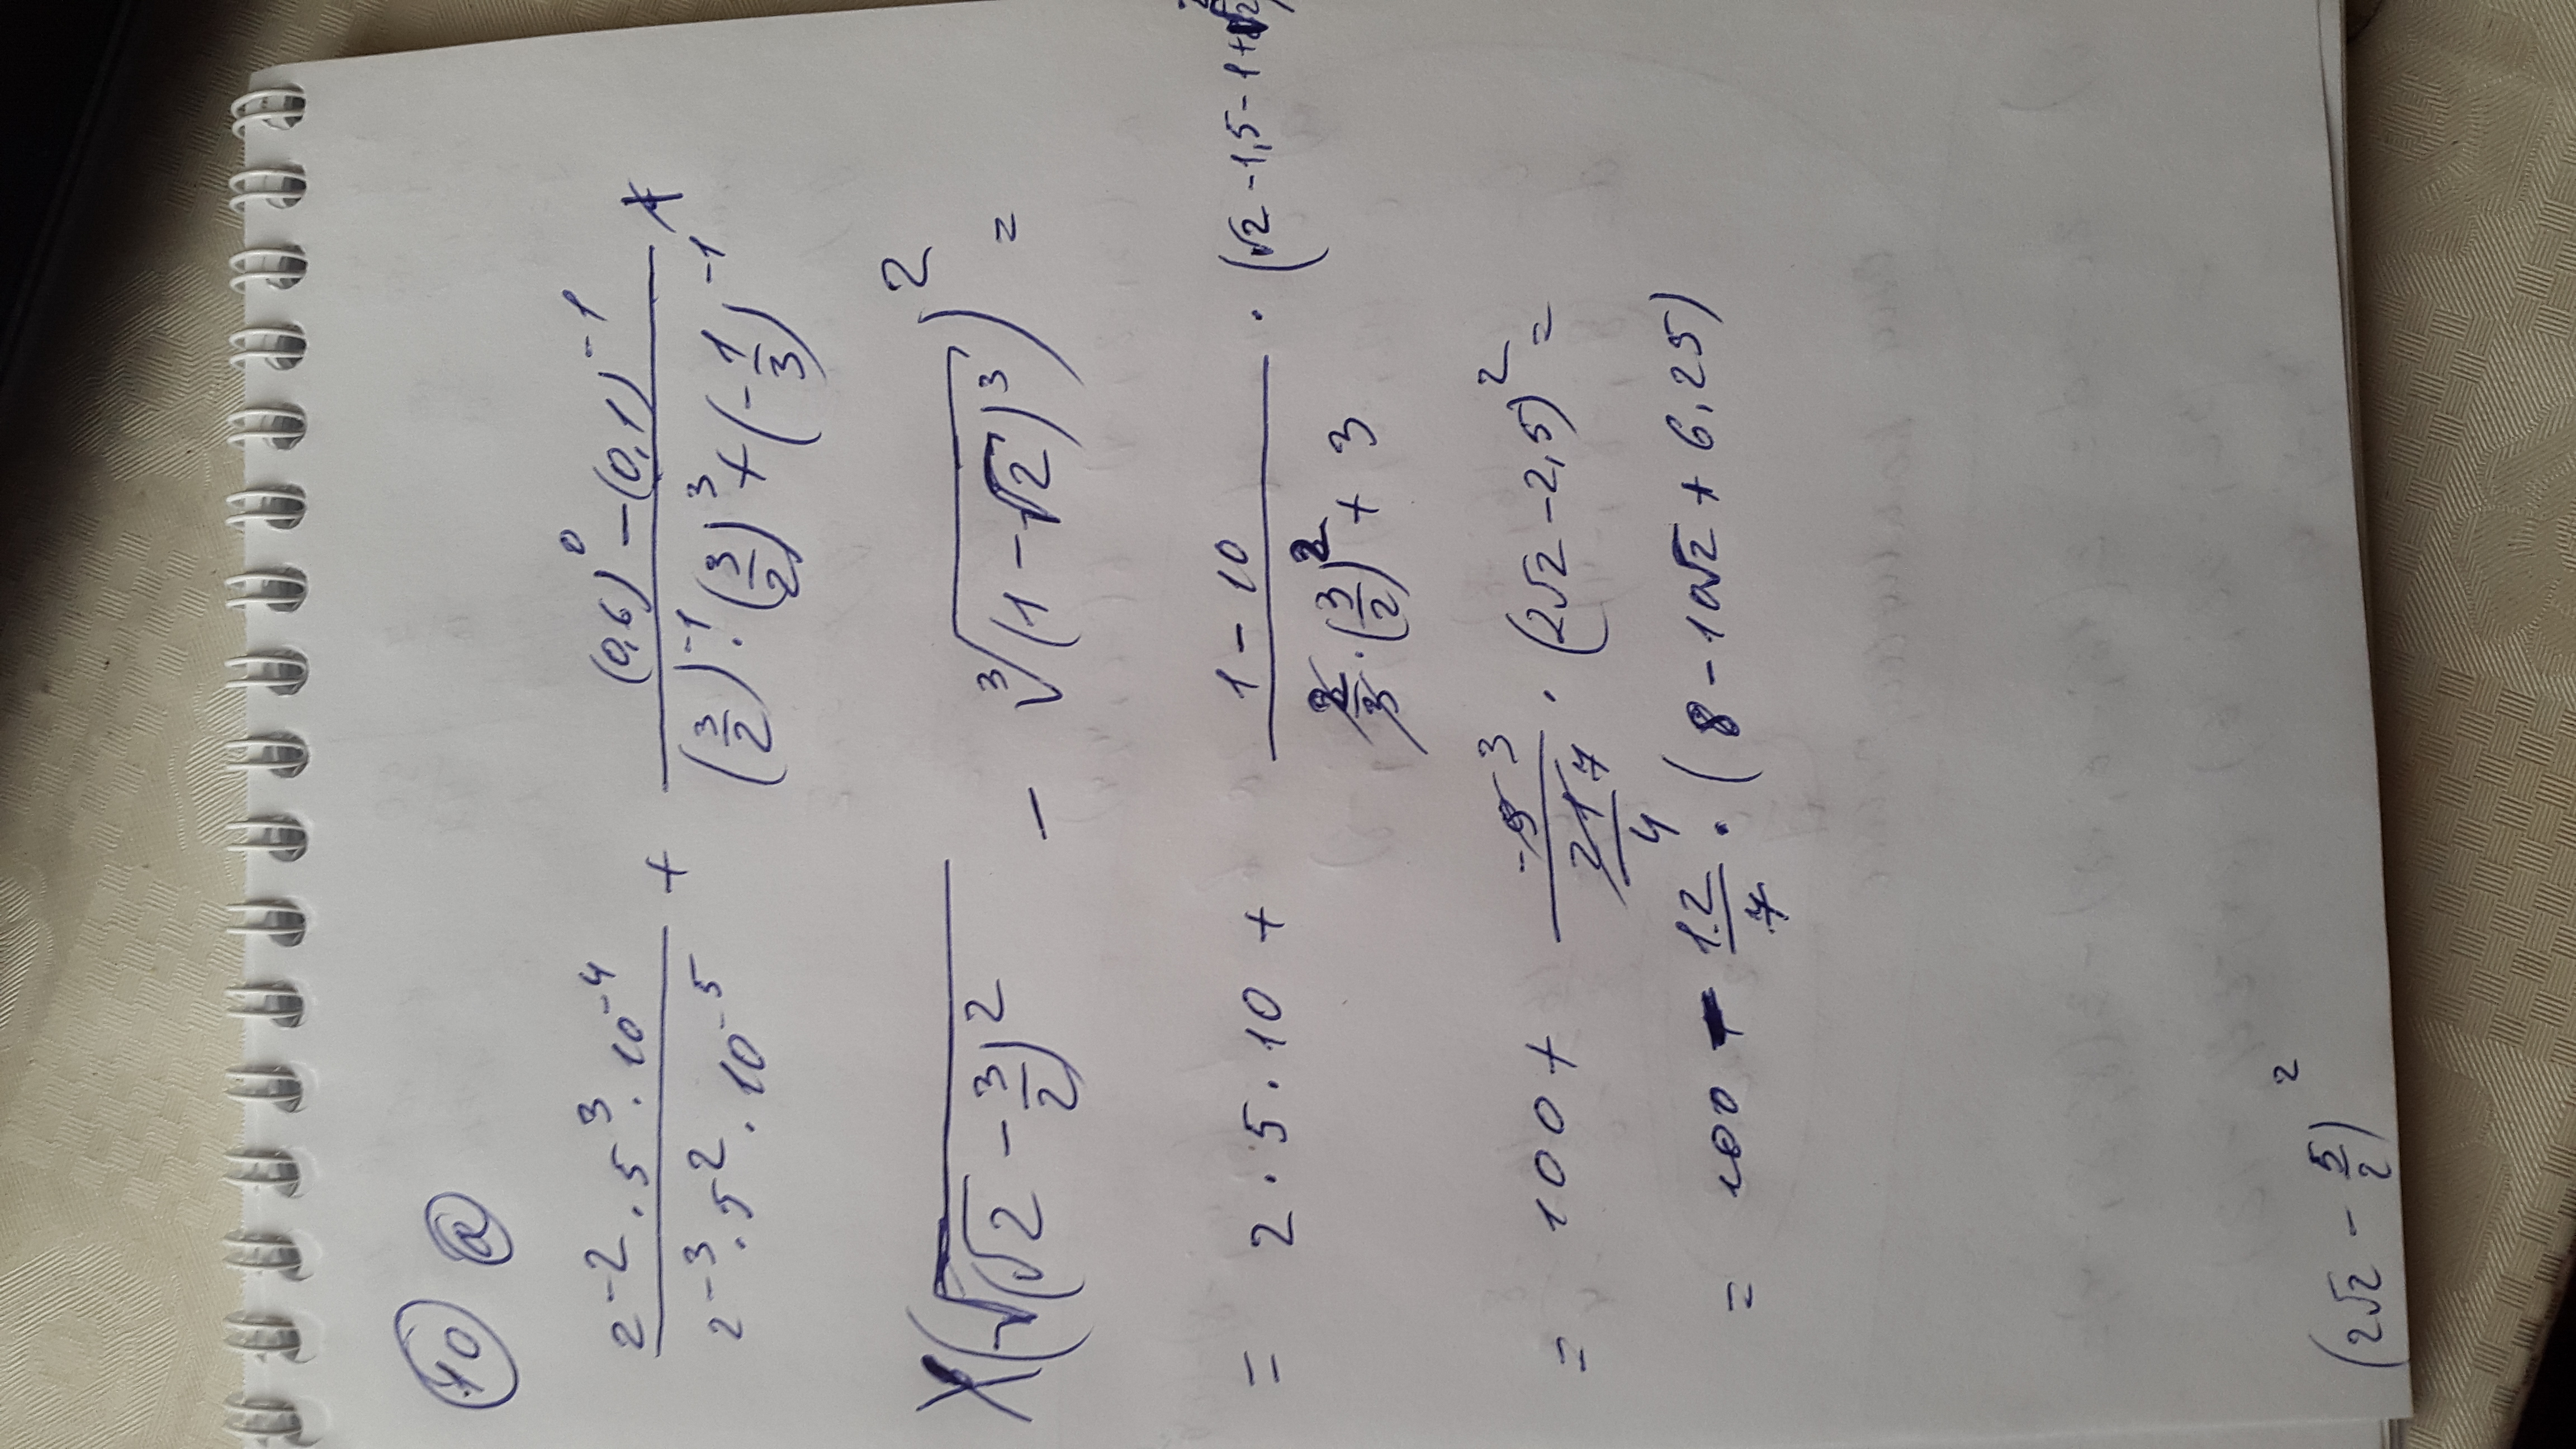 10 a
2⁻² · 5³ · 10⁻⁴ / 2⁻³ · 5² · 10⁻⁵ + (0,6)⁰ − (0,1)⁻¹ / (3/2)⁻¹ · (3/2)³ + (−1/3)⁻¹ ×
× (√(√2 − 3/2)² − ³√(1 − √2)³)² =
= 2 · 5 · 10 + 1 − 10 / 2/3 · (3/2)² + 3 · (√2 − 1,5 − 1 + √2)
= 100 + −9 3 / 21 7 / 4 · (2√2 − 2,5)² =
= 100 − 12/7 · (8 − 10√2 + 6,25)
(2√2 − 5/2)²